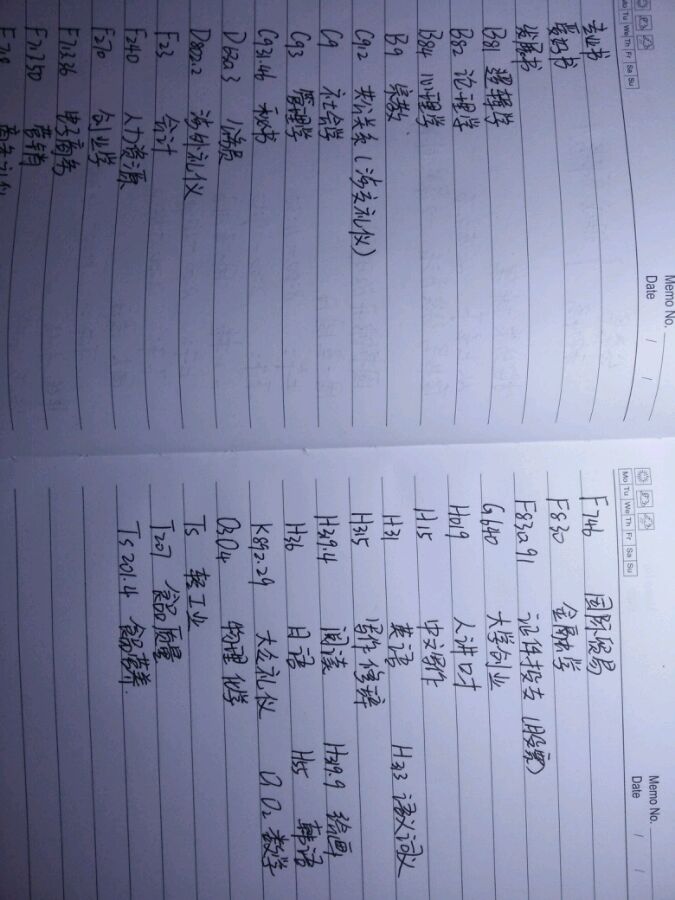 Memo No.
Mo Tu We Th Fr Sa Su
Date / /
专业书
要的书
发展书
B81 逻辑学
B82 伦理学
B84 心理学
B9 宗教
C912 公共关系(涉交礼仪)
C9 社会学
C93 管理学
C931.46 秘书
D6303 公务员
D802.2 涉外礼仪
F23 会计
F240 人力资源
F270 创业学
F713.36 电子商务
F713.50 营销
F718 商务礼仪
Memo No.
Mo Tu We Th Fr Sa Su
Date / /
F746 国际贸易
F830 金融学
F830.91 证券投资(股票)
G640 大学创业
H019 人讲口才
H15 中文写作
H31 英语 H313 语义词义
H315 写作修辞
H319.4 阅读 H319.9 绘画
H36 日语 H55 韩语
K892.29 大众礼仪 O1 O2 数学
O3O4 物理化学
TS 轻工业
T207 食品质量
TS201.4 食品营养